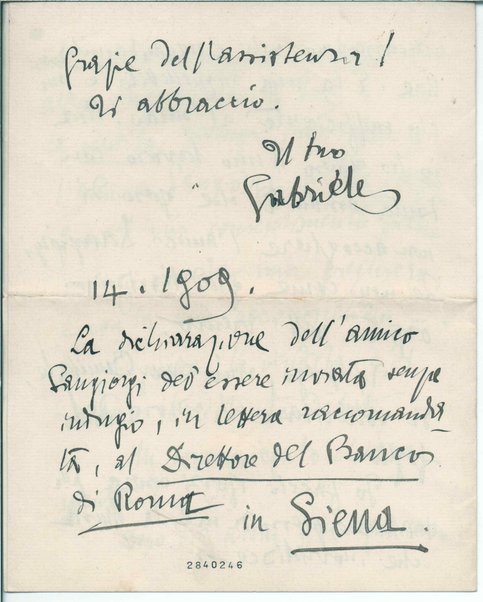 Grazie dell'assistenza!
Ti abbraccio.
Il tuo
Gabriele
14. 1909.
La dichiarazione dell'amico
Sangiorgi dev'essere inviata senza
indugio, in lettera raccomanda-
ta, al Direttore del Banco
di Roma in Siena.
2840246